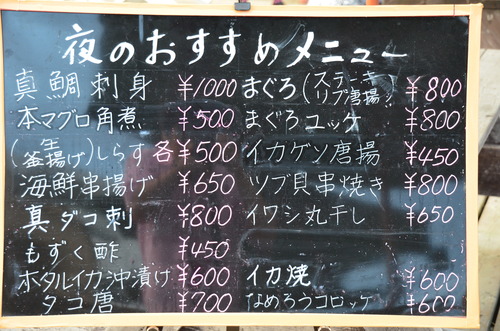 夜のおすすめメニュー
真鯛刺身 ¥1000
本マグロ角煮 ¥500
(生 釜揚げ)しらす 各¥500
海鮮串揚げ ¥650
真ダコ刺 ¥800
もずく酢 ¥450
ホタルイカ沖漬け ¥600
タコ唐 ¥700
まぐろ(ステーキ リブ唐揚) ¥800
まぐろユッケ ¥800
イカゲソ唐揚 ¥450
ツブ貝串焼き ¥800
イワシ丸干し ¥650
イカ焼 ¥600
なめろうコロッケ ¥600